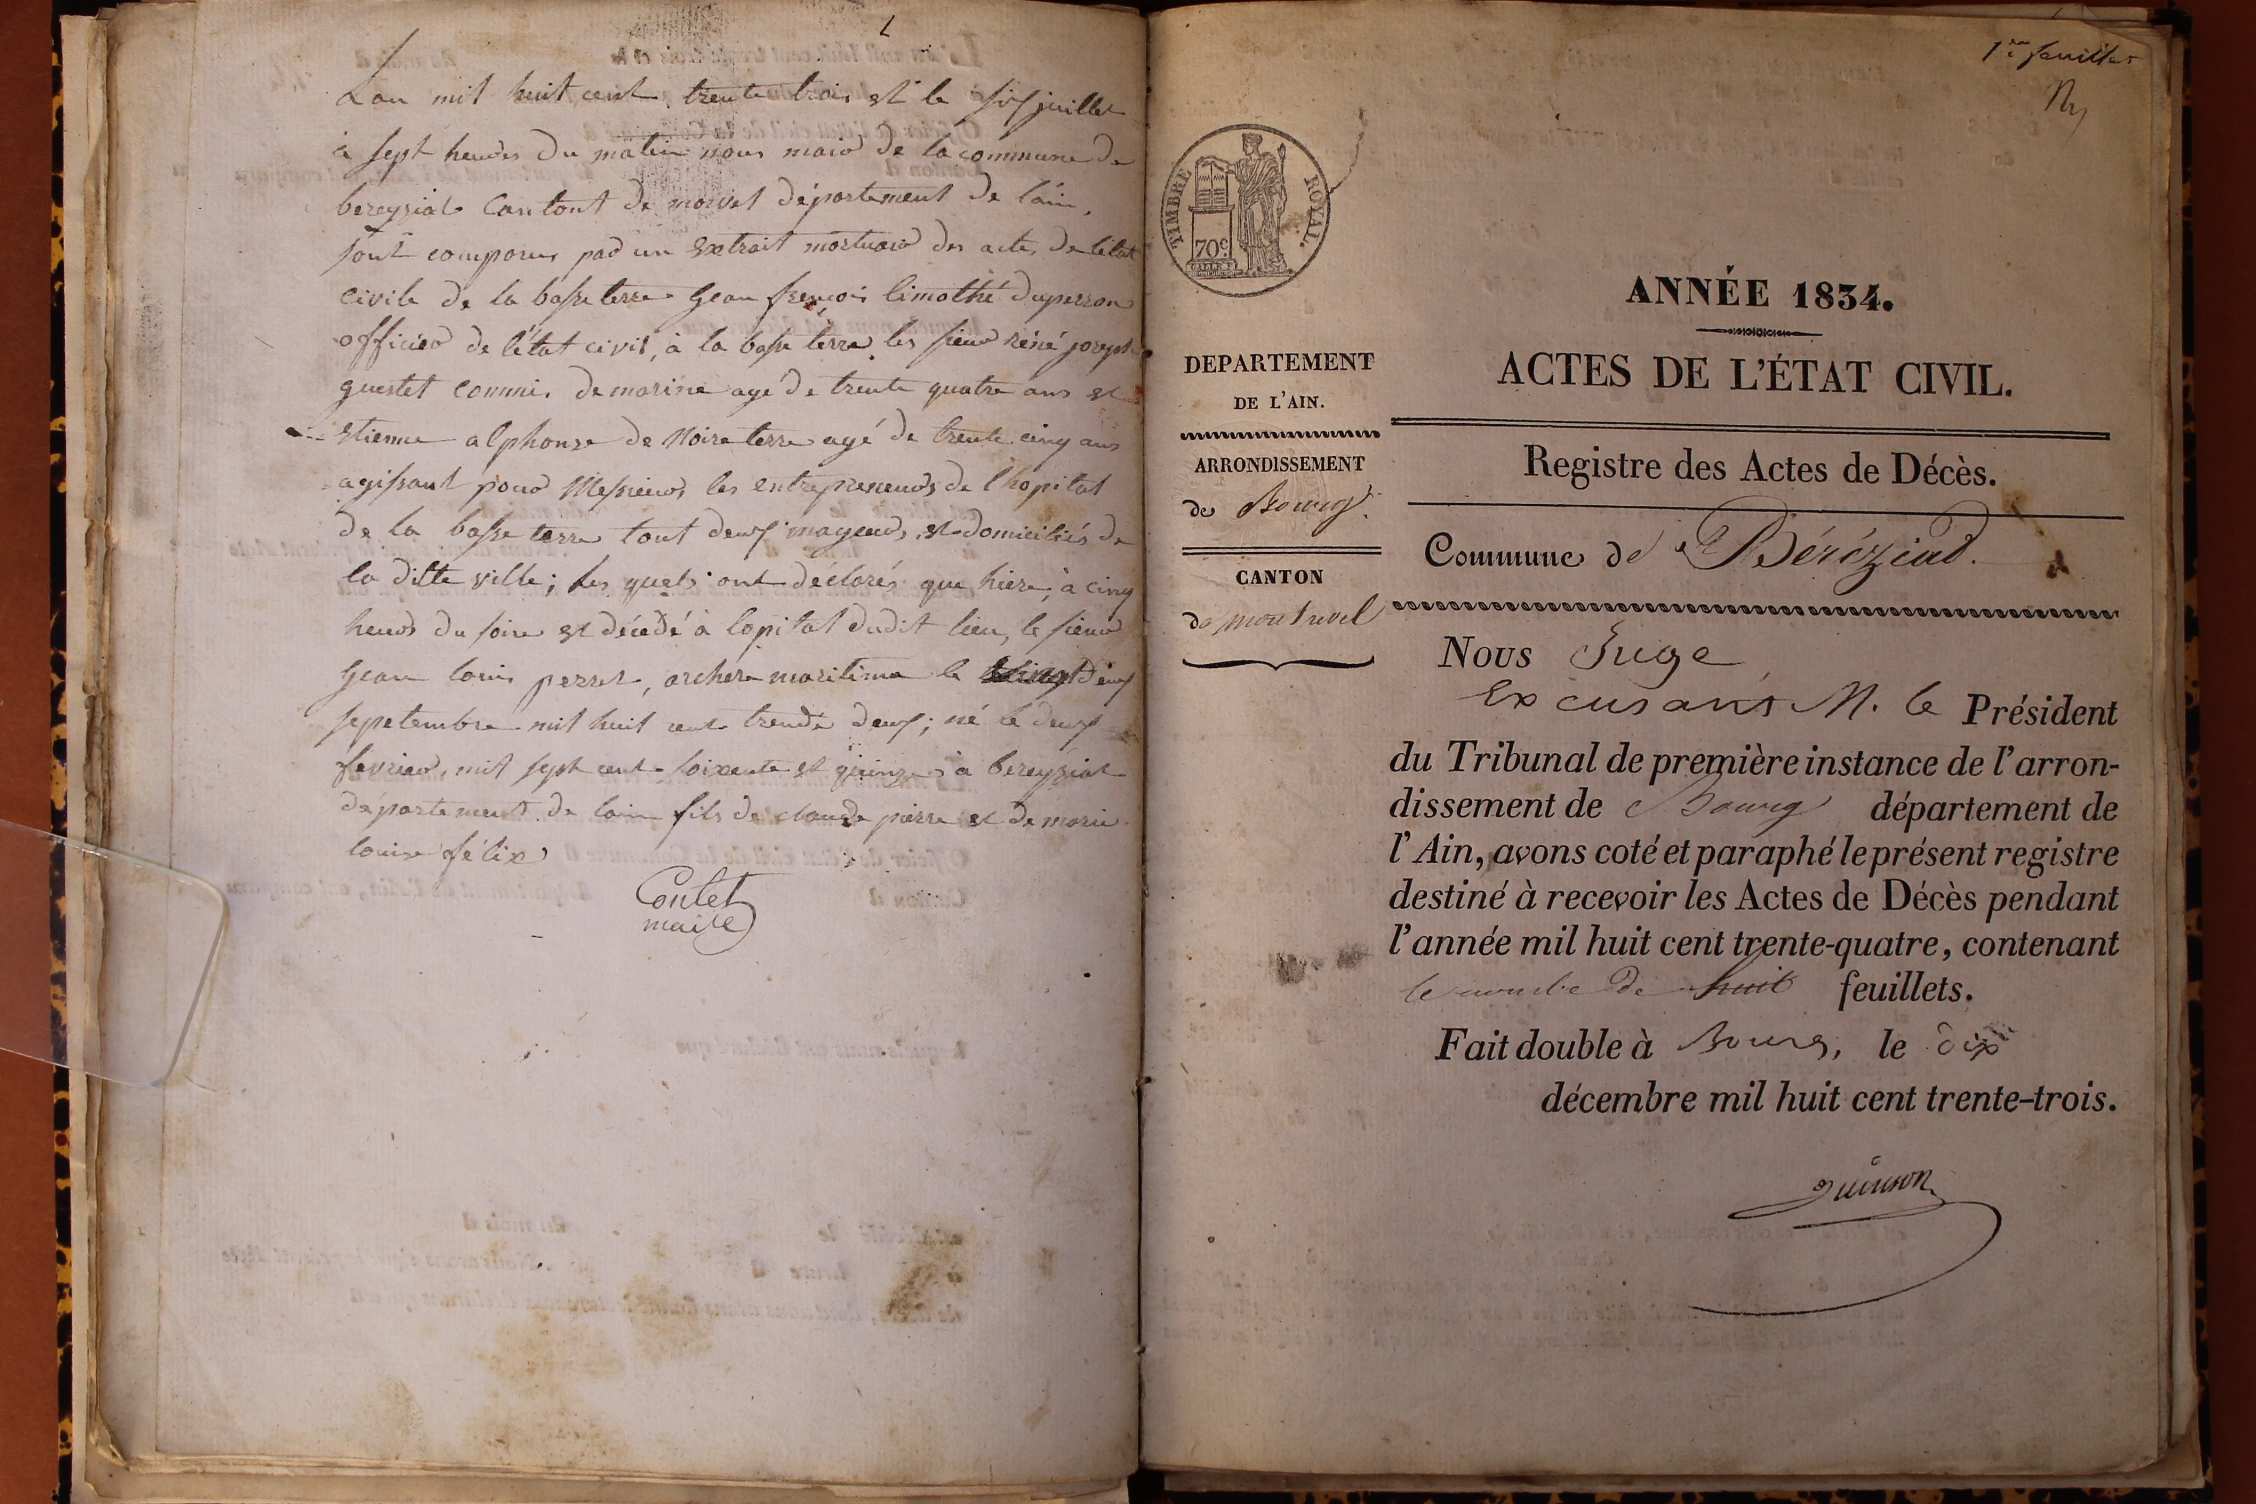 L'an mil huit cent trente trois et le six juillet
à sept heures du matin nous maire de la commune de
bereyziat Cantont de département de l'ain,
sont comparus par un extrait mortuaire des actes de l'état
civile de la basse terre Gean françois timothé duperron
officier de l'état civil, a la basse terre les sieur réné joseph
guestet commis de marine agé de trente quatre ans et
etienne alphonse de Noire terre agé de trente cinq ans
agissant pour Messieurs les entrepreneurs de l'hopital
de la basse terre tout deux mageurs et domiciliés de
la ditte ville; les quels ont déclarés que hiere, à cinq
heurs du soire est décédé à lopital dudit lieu, le sieur
Gean louis perret, archere maritime le deux
sepetembre mil huit cent trente deux; né le deux
fevrier, mil sept cent soixente et quinze à bereyziat
département de lain fils de claude pierre et de marie
louise félix
Contet
maire
1er feuillet
TIMBRE ROYAL.
70c.
ANNÉE 1834.
ACTES DE L'ÉTAT CIVIL.
DEPARTEMENT
DE L'AIN.
ARRONDISSEMENT
de Bourg
CANTON
de montrevel
Registre des Actes de Décès.
Commune de Béréziad.
Nous Juge
Excusant M. le Président
du Tribunal de première instance de l'arron-
dissement de Bourg département de
l'Ain, avons coté et paraphé le présent registre
destiné à recevoir les Actes de Décès pendant
l'année mil huit cent trente-quatre, contenant
le nombre de huit feuillets.
Fait double à Bourg, le dix
décembre mil huit cent trente-trois.